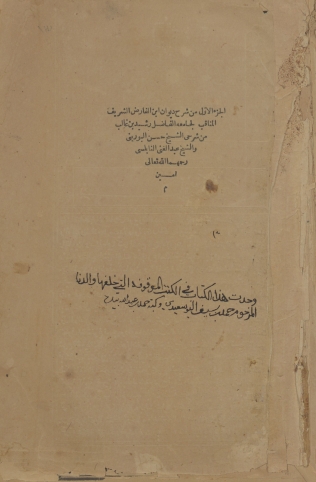 الجزء الاول من شرح ديوان ابن الفارض الشريف
لجامعه الفاضل رشيد بن غالب
من شرحى الشيخ حسن البوريني
والشيخ عبد الغنى النابلسى
رحمهما الله تعالى
امين
م
وجدت هذا الكتاب في الكتب الموقوفة التي خلفها والدنا
المرحوم حمد بن سيف البوسعيدي وكتبه